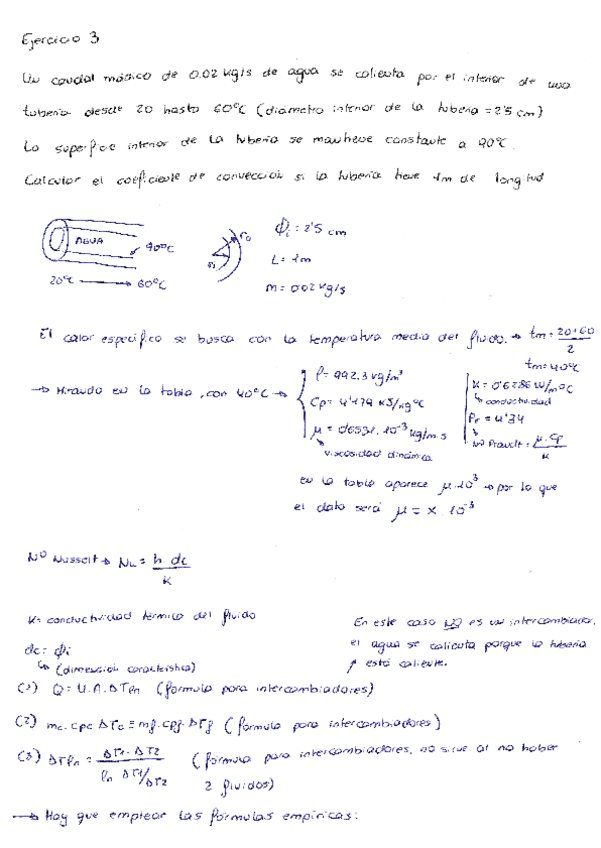 Ejercicio 3
Un caudal másico de 0.02 kg/s de agua se calienta por el interior de una
tubería desde 20 hasta 60ºC (diámetro interior de la tubería = 2'5 cm)
La superficie interior de la tubería se mantiene constante a 90ºC.
Calcular el coeficiente de convección si la tubería tiene 1m de longitud
AGUA
90ºC
20ºC → 60ºC
ri
ro
Φi = 2'5 cm
L = 1m
m = 0'02 kg/s
El calor específico se busca con la temperatura media del fluido. → tm = 20+60/2
tm = 40ºC
→ Mirando en la tabla, con 40ºC →
ρ = 992.3 kg/m³
Cp = 4'179 KJ/kgºC
μ = 0'6531·10⁻³ kg/m·s
viscosidad dinámica
K = 0'6286 W/mºC
conductividad
Pr = 4'34
Nº Prandlt = μ·Cp/K
en la tabla aparece μ·10³ → por lo que
el dato será μ = x·10⁻³
Nº Nusselt → Nu = h·dc/K
K = conductividad térmica del fluido
dc = Φi
(dimensión característica)
En este caso NO es un intercambiador,
el agua se calienta porque la tubería
está caliente.
(1) Q = U·A·ΔTln (fórmula para intercambiadores)
(2) mc·cpc ΔTc = mf·cpf·ΔTf (fórmula para intercambiadores)
(3) ΔTln = ΔT1-ΔT2/ln ΔT1/ΔT2 (fórmula para intercambiadores, no sirve al no haber
2 fluidos)
→ Hay que emplear las fórmulas empíricas: